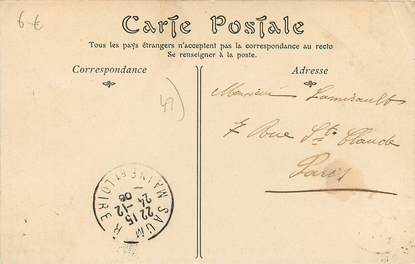 6-€
Carte Postale
Tous les pays étrangers n'acceptent pas la correspondance au recto
Se renseigner à la poste.
Correspondance
Adresse
49)
Monsieur Lamirault
7 Rue Ste Claude
Paris
SAUM
MAINE ET LOIRE
22 15
24-12
08